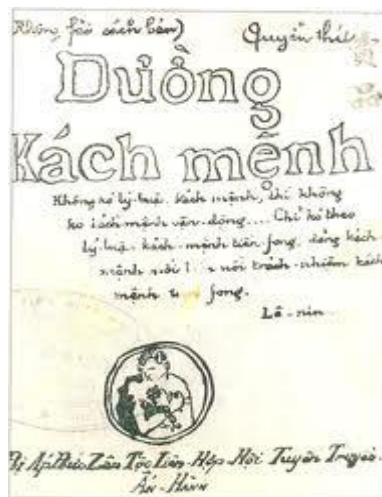 (Không fải sách bán) Quyển thứ
Đường
Kách mệnh
Không có lý luận kách mệnh, thì không
có kách mệnh vận-động.... Chỉ có theo
lý-luận kách-mệnh tiên fong, đảng kách-
mệnh mới nổi trách-nhiệm kách
mệnh fong.
Lê-nin
Bị Áp Bức Zân Tộc Liên-Hợp Hội Tuyên Truyền
Ấn-Hành